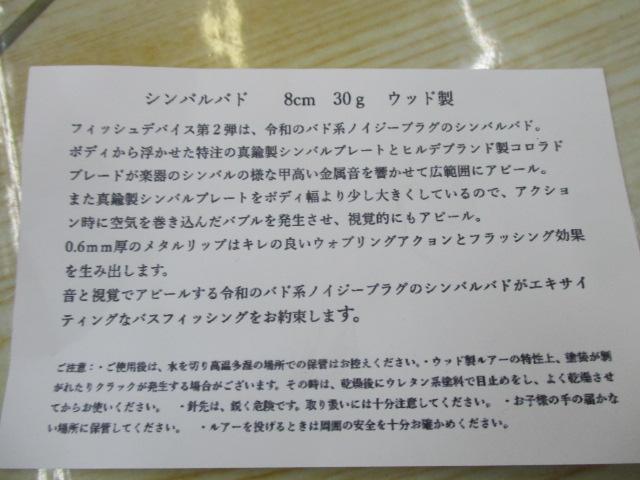 シンバルバド　8cm　30g　ウッド製
フィッシュデバイス第２弾は、令和のバド系ノイジープラグのシンバルバド。
ボディから浮かせた特注の真鍮製シンバルプレートとヒルデブランド製コロラド
ブレードが楽器のシンバルの様な甲高い金属音を響かせて広範囲にアピール。
また真鍮製シンバルプレートをボディ幅より少し大きくしているので、アクショ
ン時に空気を巻き込んだバブルを発生させ、視覚的にもアピール。
0.6mm厚のメタルリップはキレの良いウォブリングアクョンとフラッシング効果
を生み出します。
音と視覚でアピールする令和のバド系ノイジープラグのシンバルバドがエキサイ
ティングなバスフィッシングをお約束します。
ご注意：・ご使用後は、水を切り高温多湿の場所での保管はお控えください。・ウッド製ルアーの特性上、塗装が剝
がれたりクラックが発生する場合がございます。その時は、乾燥後にウレタン系塗料で目止めをし、よく乾燥させ
てからお使いください。　・針先は、鋭く危険です。取り扱いには十分注意してください。　・お子様の手の届かな
い場所に保管してください。　・ルアーを投げるときは周囲の安全を十分お確かめください。